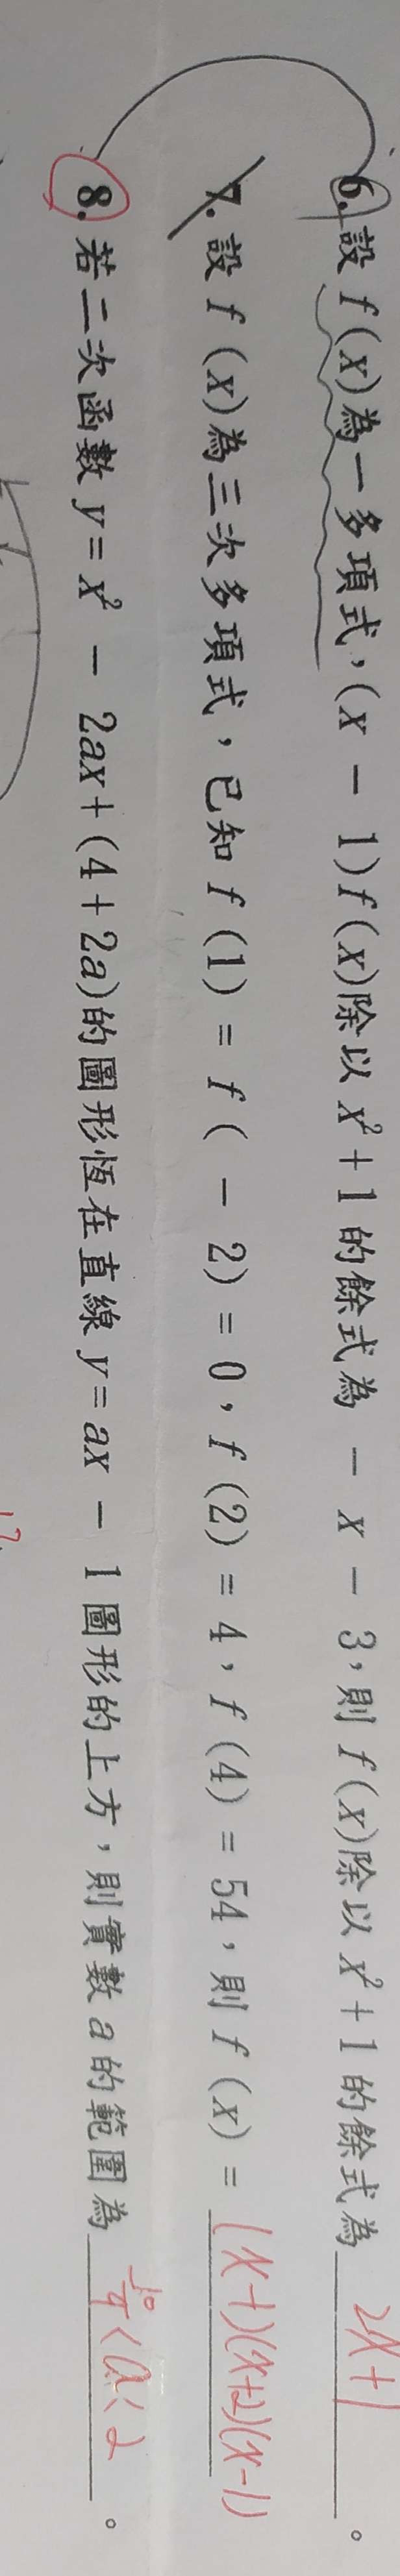 6. 設 f (x)為一多項式，(x － 1)f (x)除以 x²＋1 的餘式為 － x － 3，則 f (x)除以 x²＋1 的餘式為 2x+1 。
7. 設 f (x)為三次多項式，已知 f (1) = f ( － 2) = 0，f (2) = 4，f (4) = 54，則 f (x) = (x-1)(x+2)(x-1)
8. 若二次函數 y = x² － 2ax＋(4＋2a)的圖形恆在直線 y = ax － 1 圖形的上方，則實數 a 的範圍為 -10/9 < a < 2 。